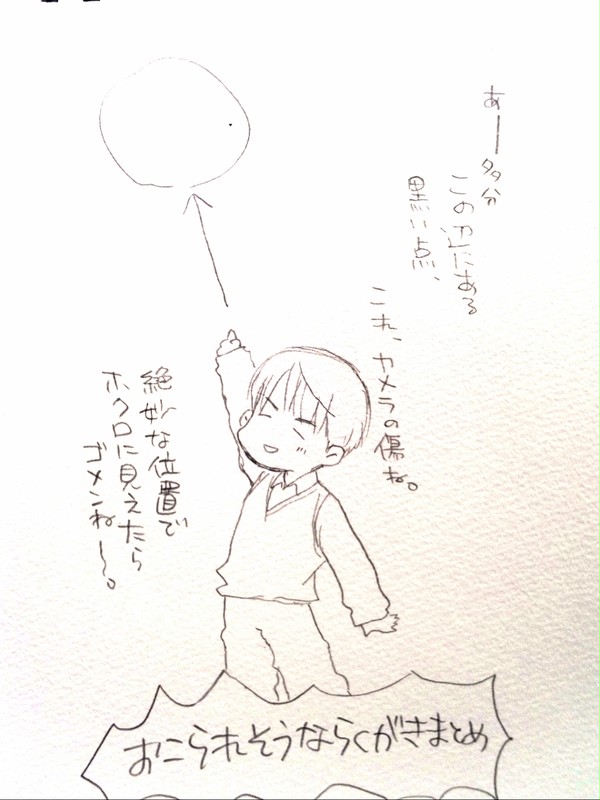 あー多分
この辺にある
黒い点、
これ、カメラの傷ね。
絶妙な位置で
ホクロに見えたら
ゴメンね〜。
おこられそうならくがきまとめ